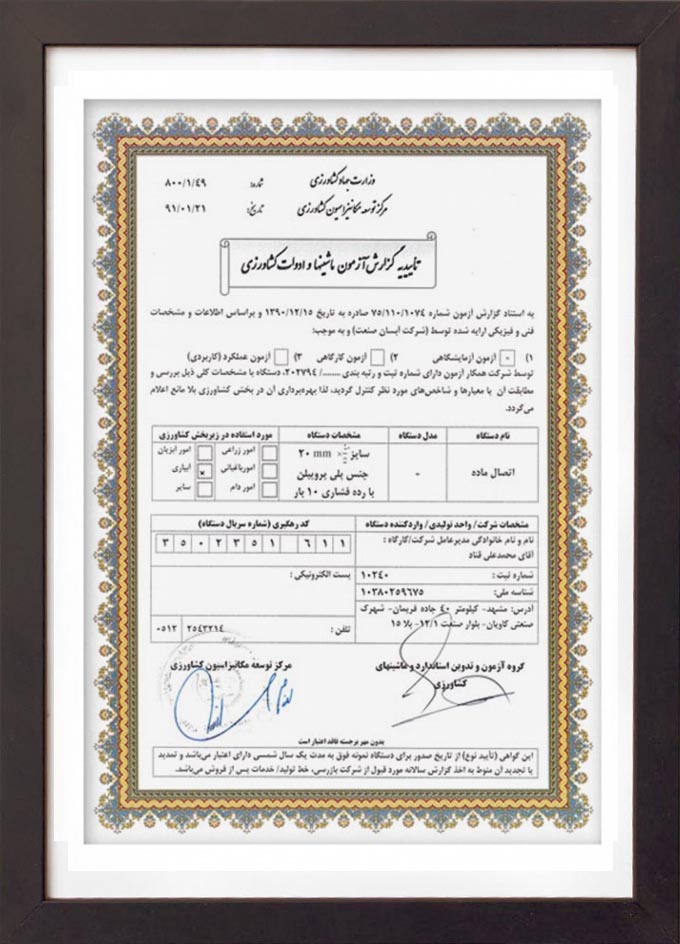 وزارت جهاد کشاورزی
شماره: ۸۰۰/۱/۴۹
مرکز توسعه مکانیزاسیون کشاورزی
تاریخ: ۹۱/۰۱/۲۱
تاییدیه گزارش آزمون ماشینها و ادوات کشاورزی
به استناد گزارش آزمون شماره ۷۵/۱۱۰/۱۰۷۴ صادره به تاریخ ۱۳۹۰/۱۲/۱۵ و براساس اطلاعات و مشخصات
فنی و فیزیکی ارایه شده توسط (شرکت آبسان صنعت) و به موجب:
۱) آزمون آزمایشگاهی ۲) آزمون کارگاهی ۳) آزمون عملکرد (کاربردی)
توسط شرکت همکار آزمون دارای شماره ثبت و رتبه بندی ......./۲۰۲۷۹۴، دستگاه با مشخصات کلی ذیل بررسی و
مطابقت آن با معیارها و شاخص‌های مورد نظر کنترل گردید، لذا بهره‌برداری آن در بخش کشاورزی بلا مانع اعلام
می‌گردد.
نام دستگاه مدل دستگاه مشخصات دستگاه مورد استفاده در زیربخش کشاورزی
اتصال ماده -
سایز ۲۰ mm
جنس پلی پروپیلن
با رده فشاری ۱۰ بار
امور زراعی امور ابزیان
امور باغبانی آبیاری ×
امور دام سایر
مشخصات شرکت/ واحد تولیدی/ واردکننده دستگاه
کد رهگیری (شماره سریال دستگاه)
نام و نام خانوادگی مدیرعامل شرکت/کارگاه :
آقای محمدعلی قناد
۳ ۵ ۰ ۲ ۳ ۵ ۱ ۶ ۱ ۱
شماره ثبت : ۱۰۲۴۰
پست الکترونیکی :
شناسه ملی: ۱۰۳۸۰۲۵۹۶۷۵
آدرس: مشهد- کیلومتر ۴۰ جاده فریمان- شهرک
صنعتی کاویان- بلوار صنعت ۱۲/۱- پلا ۱۵
تلفن : ۲۵۴۳۲۱۴ ۰۵۱۲
گروه آزمون و تدوین استاندارد و ماشینهای
کشاورزی
مرکز توسعه مکانیزاسیون کشاورزی
بدون مهر برجسته فاقد اعتبار است
این گواهی (تأیید نوع) از تاریخ صدور برای دستگاه نمونه فوق به مدت یک سال شمسی دارای اعتبار می‌باشد و تمدید
یا تجدید آن منوط به اخذ گزارش سالانه مورد قبول از شرکت بازرسی، خط تولید/ خدمات پس از فروش می‌باشد.